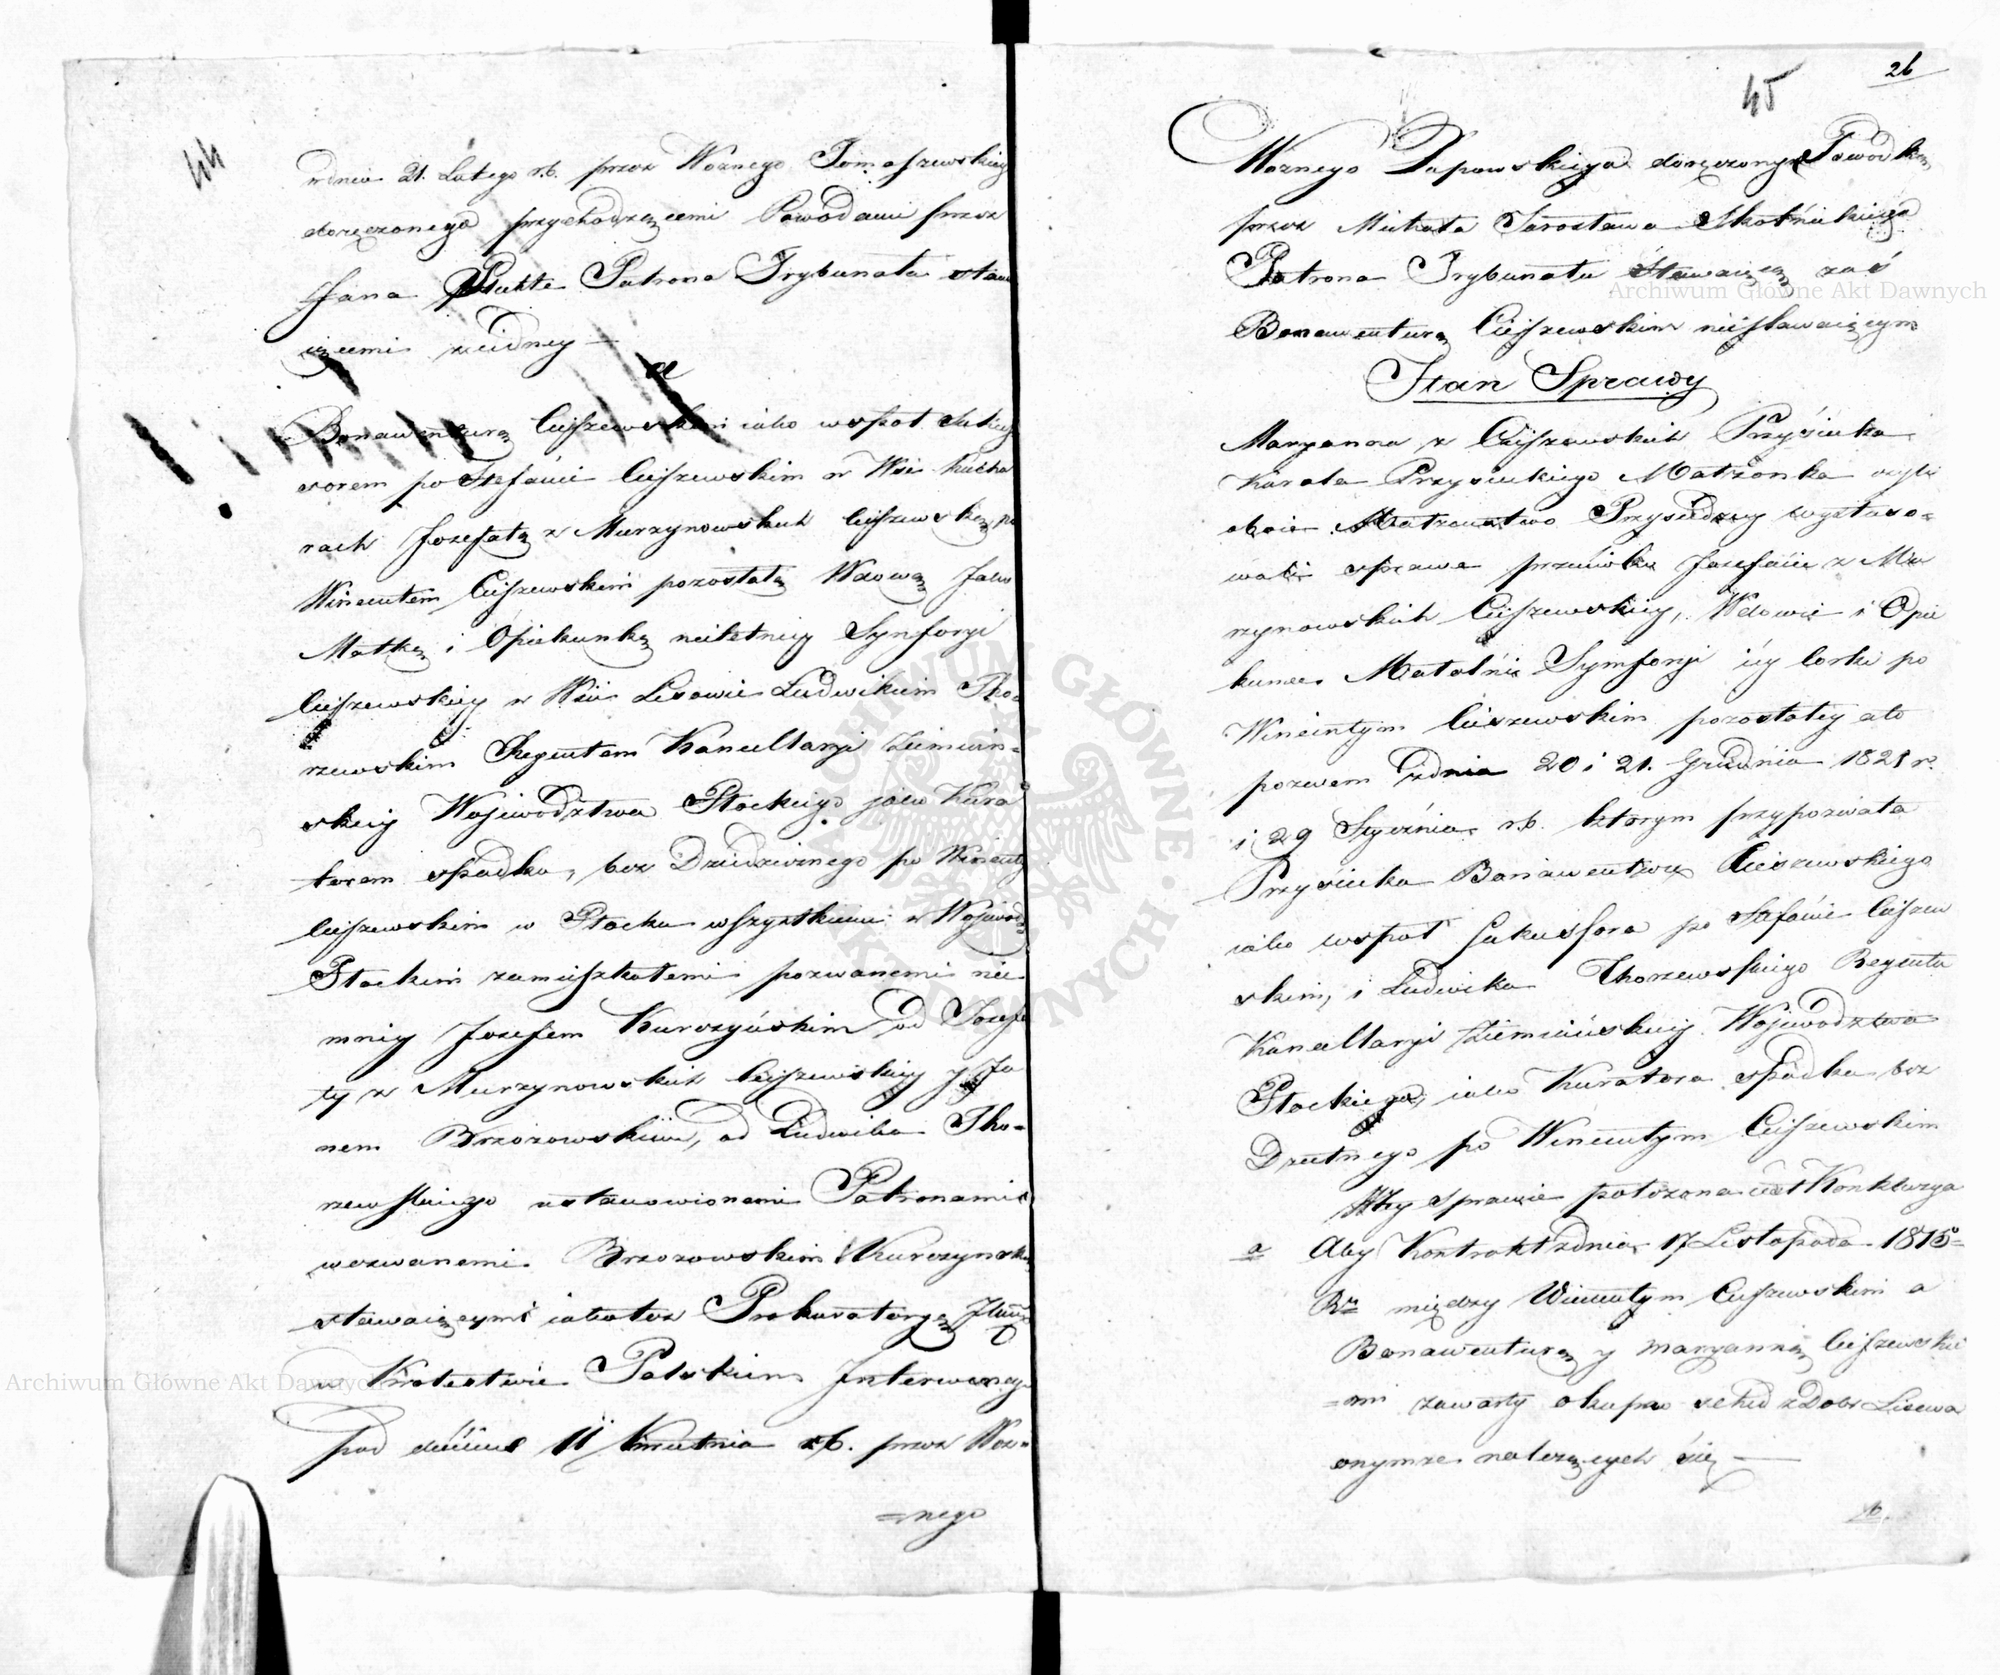 44
zdnia 21. Lutego r.b. przez Woznego Tomaszewskieg
doręczonego przychodzącemi Powodami przez
Jana Patrona Trybunału staw
iącemi z iedney —
a
Bonawenturą Ciszewskim iako wspoł Sukce
sorem po Stefanie Ciszewskim w Wsi Kucha
rach Jozefatą z Murzynowskich Ciszewską po
Wincentem Ciszewskim pozostałą Wdową Jako
Matką i Opiekunką nieletniey Symforyi
Ciszewskiey w Wsi Lisowie Ludwikiem Tho=
rzewskim Regentem Kancellaryi Ziemian=
skiey Wojewodztwa Płockiego jako Kura
torem spadku, bez Dziedzicznego po Wincenty
Ciszewskim w Płocku wszystkiemi w Wojewod
Płockim zamieszkałemi pozwanemi nie
mniey Jozefem Kurczyńskim od Jozefa
ty z Murzynowskich Ciszewskiey y Ja
nem Brzozowskim, od Ludwika Tho=
rzewskiego ustanowionemi Patronami
wezwanemi Brzozowskim Kurczynskim
stawaiącymi iakoteż Prokuratoryą
w Krolestwie Polskiem Interweny
pod dniem 11 Kwietnia r.b. przez Woz=
=nego
45
26
Woznego doręczonym Powodką
przez Michała Jarosława Skotnickiego
Patrona Trybunału Stawaiącą zaś
Bonawenturą Ciszewskim niestawaiącym
Stan Sprawy
Maryanna z Ciszewskich Przysiecka
Karola Przysieckiego Małżonka czyli
oboie Małżenstwo Przysieccy wystoso=
wali sprawę przeciwko Jozefacie z Mu
rzynowskich Ciszewskiey, Wdowie i Opie
kunce Małolniey Symforyi iey Corki po
Wincintym Ciszewskim pozostałey ato
pozwem zdnia 20 i 21. Grudnia 1821 r.
i 29 Stycznia r.b. ktorym przypozwała
Przysiecka Bonawenturę Ciszewskiego
iako wspoł Sukcessora po Stefanie Ciszew
skim, i Ludwika Thorzewskiego Regenta
Kancellaryi Ziemiańskiey Wojewodztwa
Płockiego, iako Kuratora spadku bez
Dzietnego po Wincentym Ciszewskim
Wtey sprawie położona iest Konkluzya
a Aby Kontrakt zdnia 17 Listopada 1815=
Ru między Wincentym Ciszewskim a
Bonawenturą y Maryanną Ciszewskie
=mi zawarty o kupno sched z Dobr Lisewa
onymże należących się —
b.
Archiwum Główne Akt Dawnych
Archiwum Główne Akt Dawnych
ARCHIWUM GŁÓWNE AKT DAWNYCH